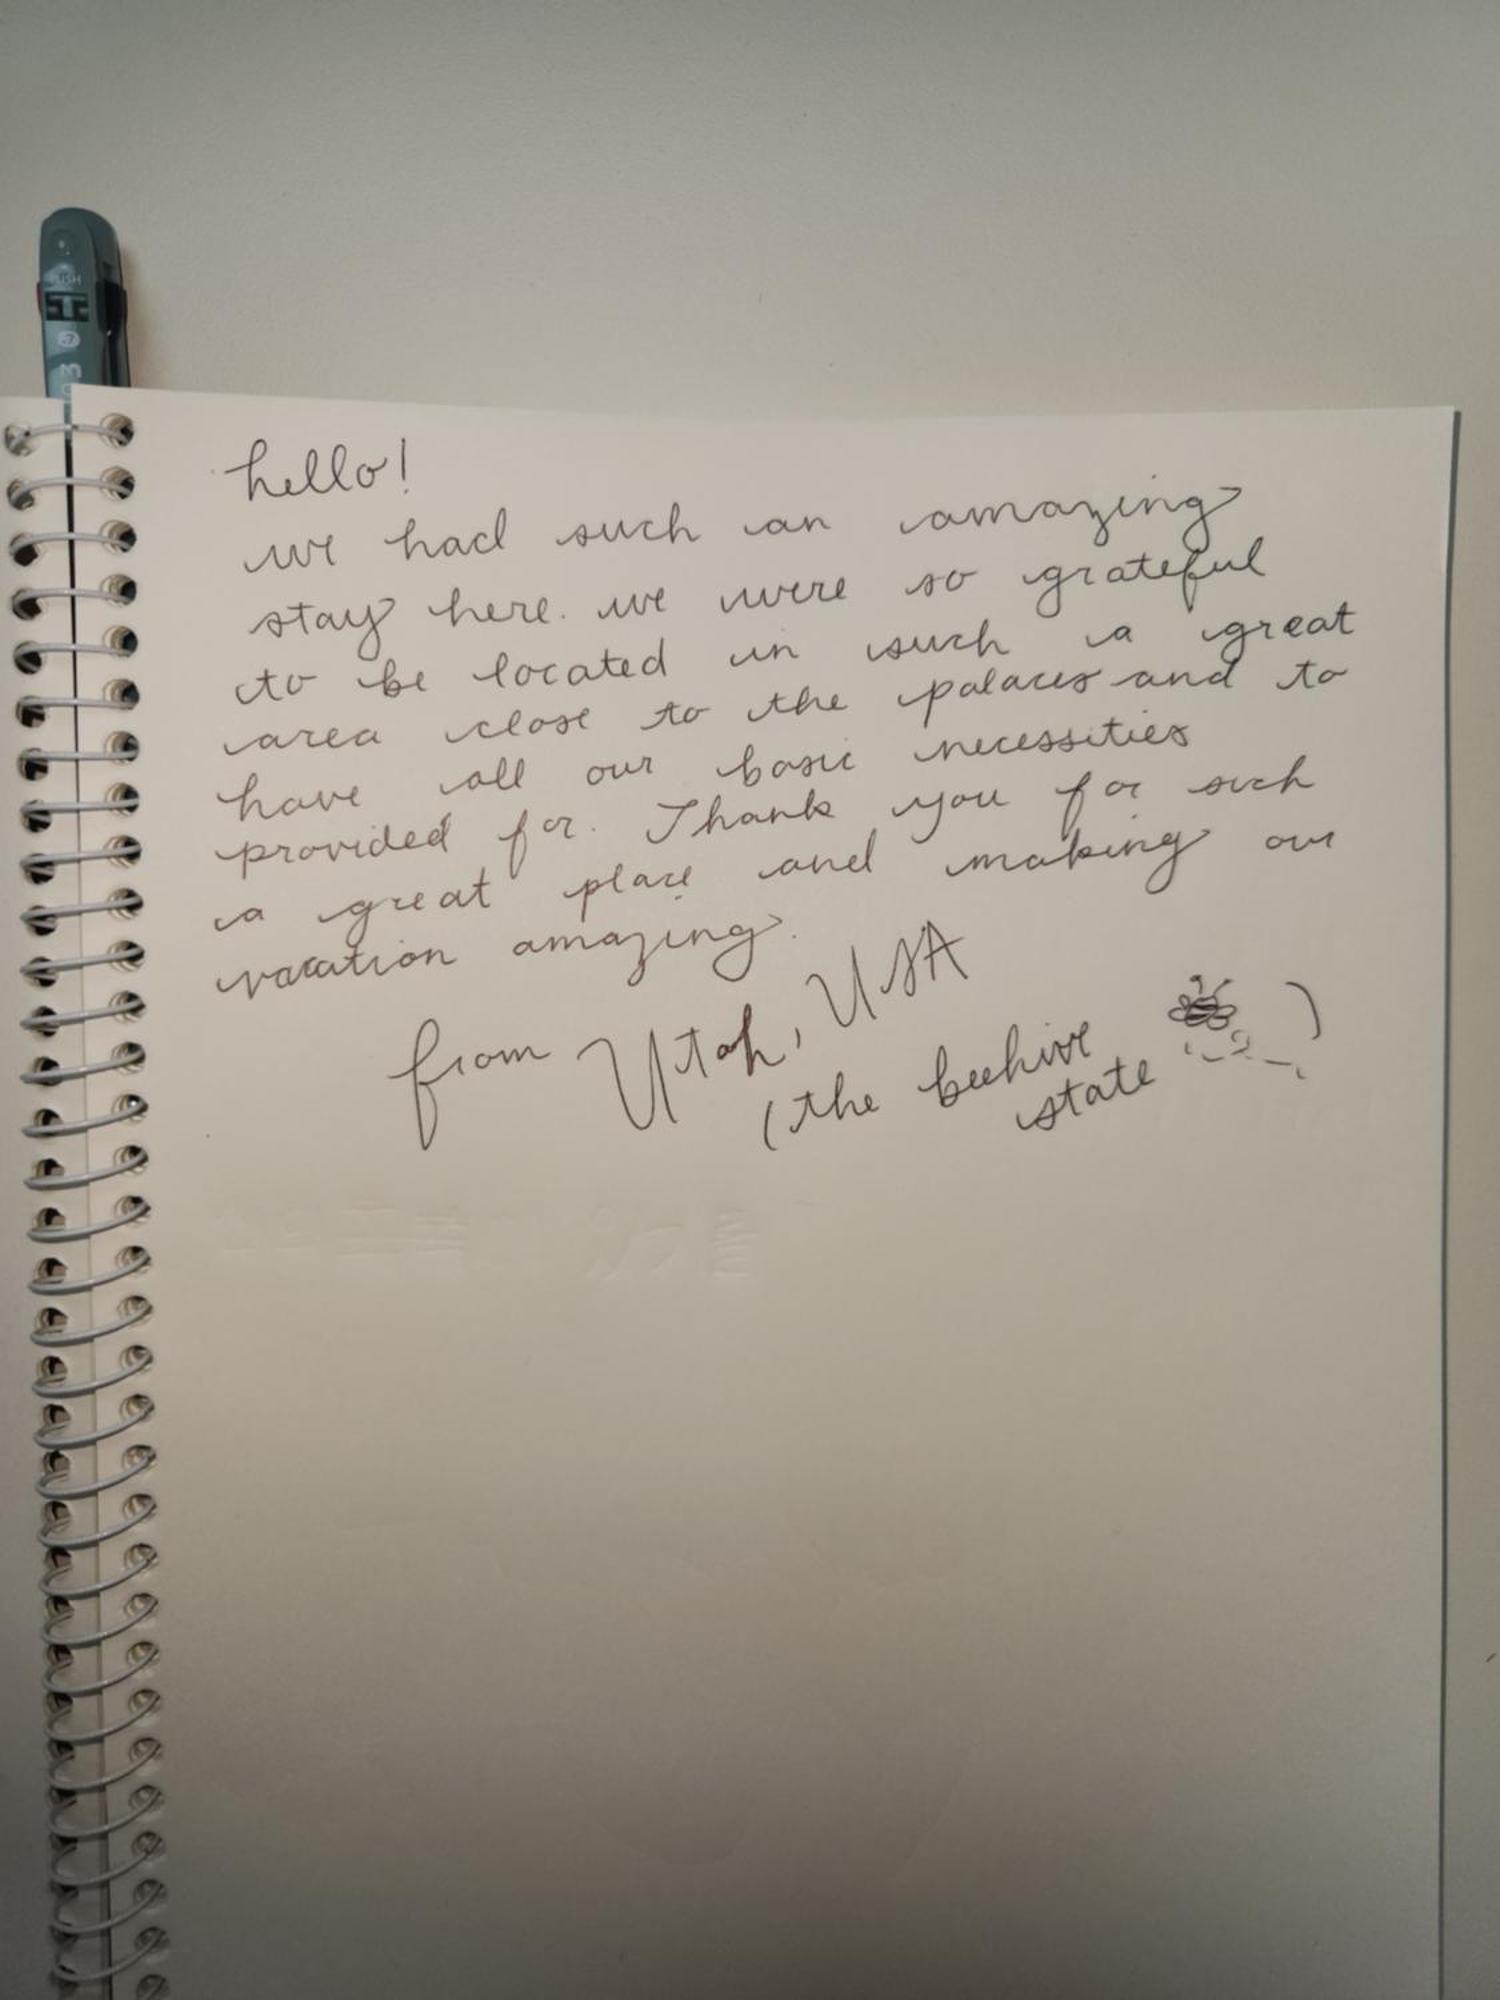 PUSH
hello!
we had such an amazing
stay here. we were so grateful
to be located in such a great
area close to the palaces and to
have all our basic necessities
provided for. Thank you for such
a great place and making our
vacation amazing.
from Utah, USA
(the beehive
state )